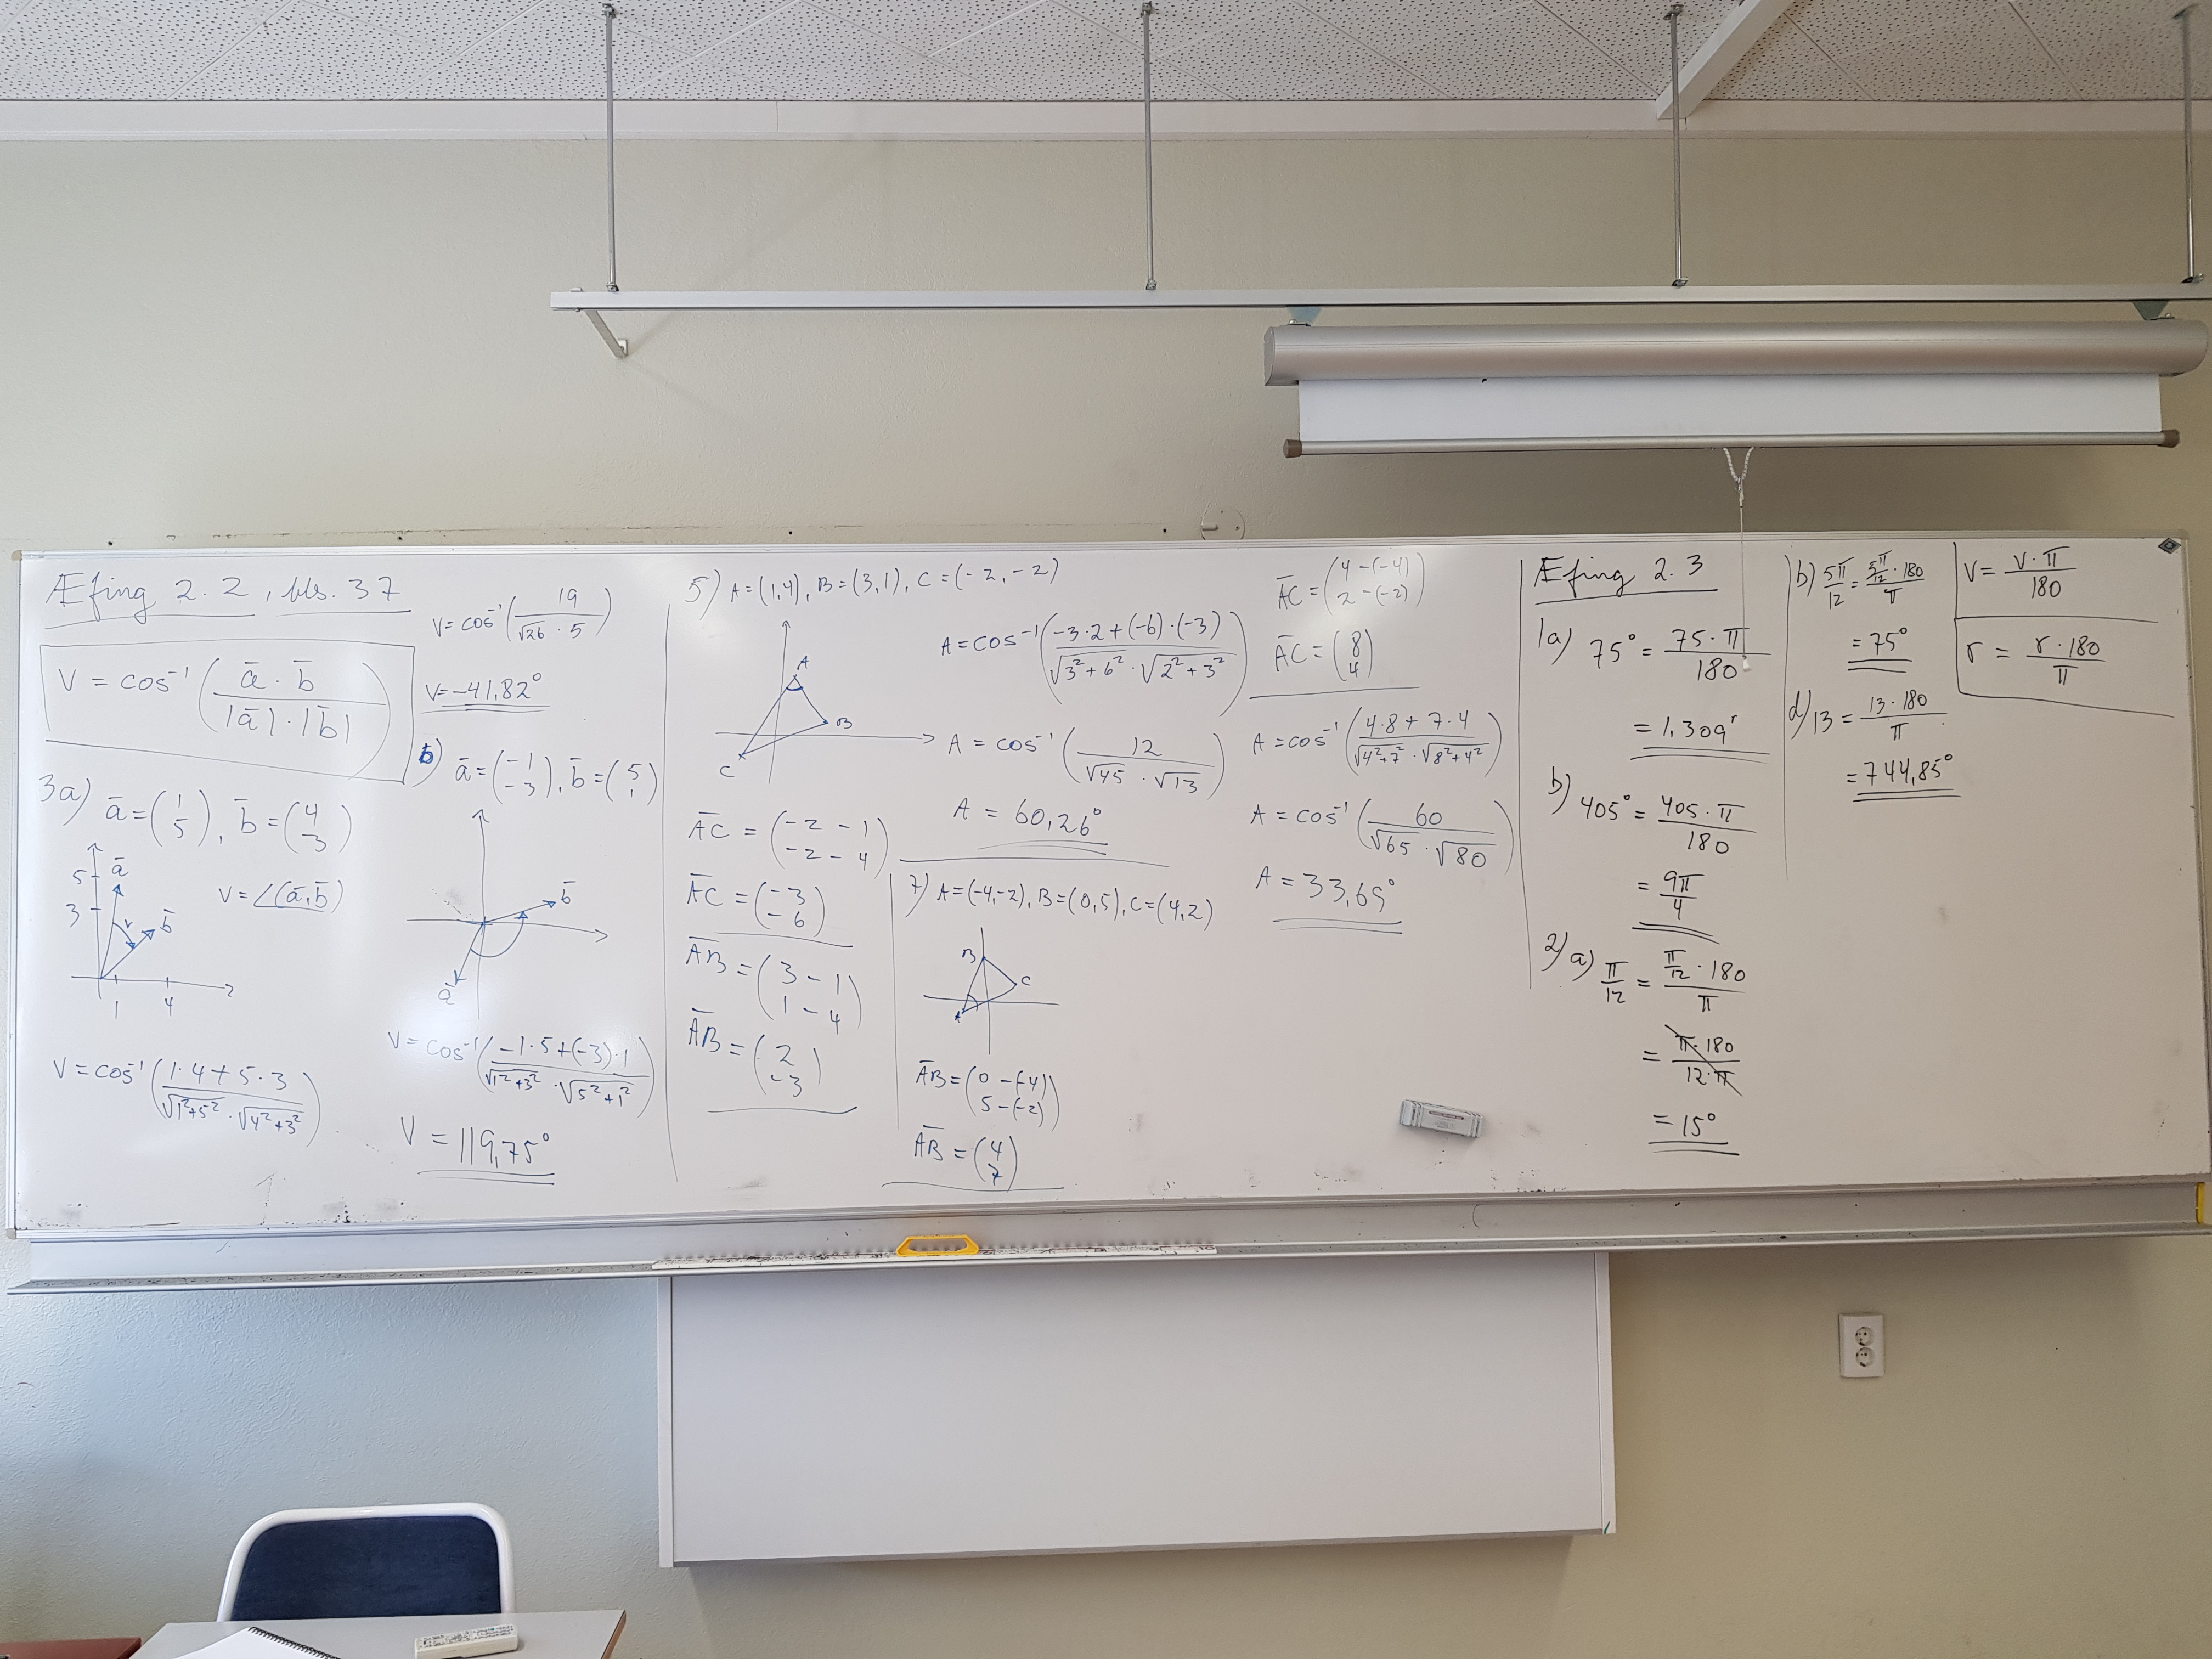 Æfing 2.2, bls. 37
V = cos⁻¹( (ā · b̄) / (|ā| · |b̄|) )
3a) ā = (1 5), b̄ = (4 3)
5
3
ā
v
b̄
1
4
V = ∠(ā, b̄)
V = cos⁻¹( (1·4 + 5·3) / (√(1²+5²) · √(4²+3²)) )
V = cos⁻¹( 19 / (√26 · 5) )
V = -41,82°
b) ā = (-1 -3), b̄ = (5 1)
b̄
ā
V = cos⁻¹( (-1·5 + (-3)·1) / (√(1²+3²) · √(5²+1²)) )
V = 119,75°
5) A = (1,4), B = (3,1), C = (-2,-2)
A
B
C
AC = (-2 - 1 -2 - 4)
AC = (-3 -6)
AB = (3 - 1 1 - 4)
AB = (2 -3)
A = cos⁻¹( (-3·2 + (-6)·(-3)) / (√(3²+6²) · √(2²+3²)) )
A = cos⁻¹( 12 / (√45 · √13) )
A = 60,26°
7) A = (-4,-2), B = (0,5), C = (4,2)
B
C
A
AB = (0 - (-4) 5 - (-2))
AB = (4 7)
AC = (4 - (-4) 2 - (-2))
AC = (8 4)
A = cos⁻¹( (4·8 + 7·4) / (√(4²+7²) · √(8²+4²)) )
A = cos⁻¹( 60 / (√65 · √80) )
A = 33,69°
Æfing 2.3
1a) 75° = 75·π / 180
= 1,309ʳ
b) 405° = 405·π / 180
= 9π / 4
2) a) π/12 = (π/12 · 180) / π
= π·180 / 12·π
= 15°
b) 5π/12 = (5π/12 · 180) / π
= 75°
d) 13 = 13·180 / π
= 744,85°
V = V·π / 180
r = r·180 / π